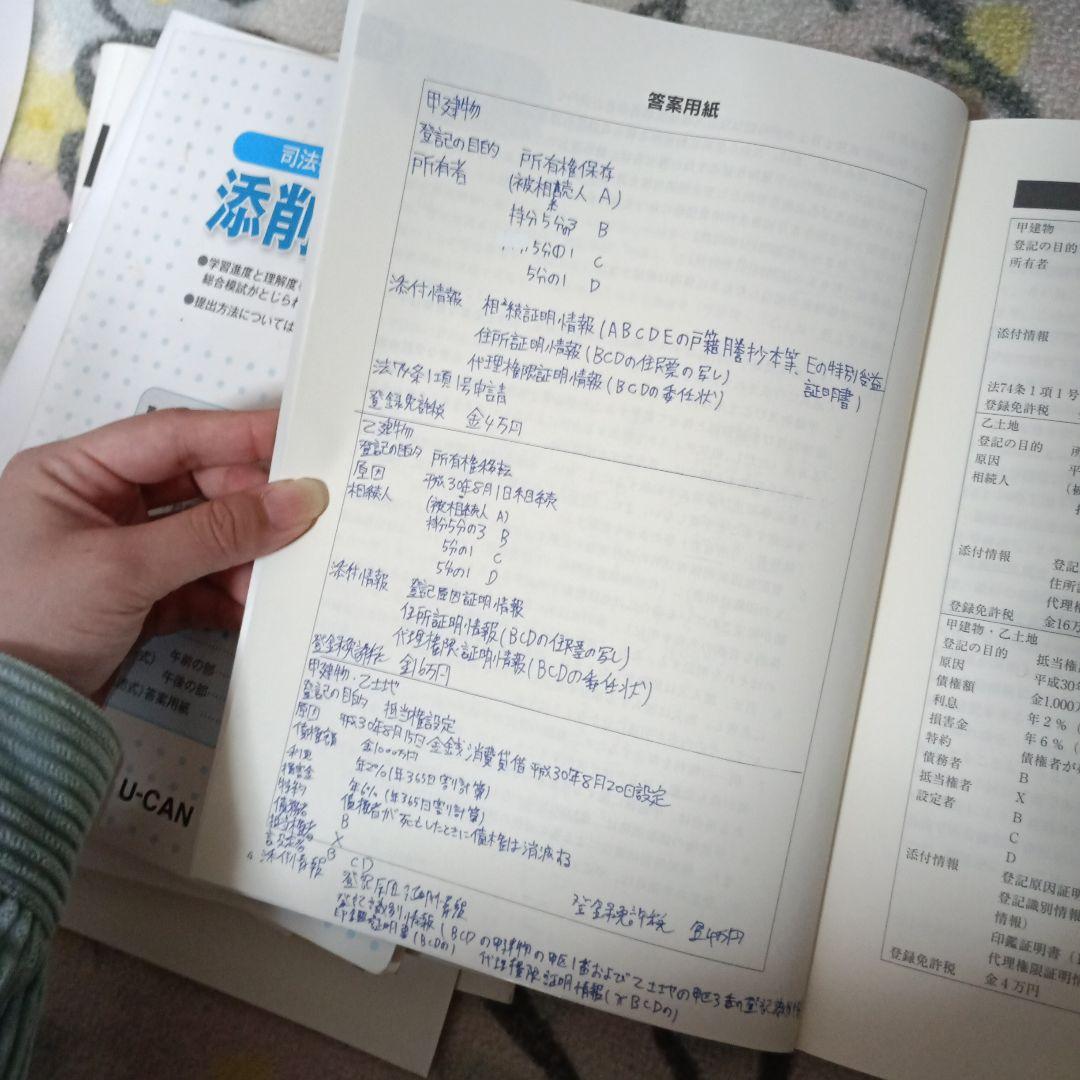 答案用紙
甲建物
登記の目的 所有権保存
所有者 (被相続人 A)
持分5分の3 B
5分の1 C
5分の1 D
添付情報 相続証明情報(ABCDEの戸籍謄抄本等、Eの特別受益証明書)
住所証明情報(BCDの住民票の写し)
代理権限証明情報(BCDの委任状)
法74条1項1号申請
登録免許税 金4万円
乙建物
登記の目的 所有権移転
原因 平成30年8月1日相続
相続人 (被相続人 A)
持分5分の3 B
5分の1 C
5分の1 D
添付情報 登記原因証明情報
住所証明情報(BCDの住民票の写し)
代理権限証明情報(BCDの委任状)
登録免許税 金16万円
甲建物・乙土地
登記の目的 抵当権設定
原因 平成30年8月15日金銭消費貸借平成30年8月20日設定
債権額 金1000万円
利息 年2%(年365日割計算)
損害金 年6%(年365日割計算)
特約 債権者が死亡したときに債権は消滅する
債務者 B
抵当権者 X
設定者 B CD
添付情報 登記原因証明情報
登記識別情報(BCDの甲建物の甲区1番および乙土地の甲区3番の登記識別
印鑑証明書(BCDの) 代理権限証明情報(XBCDの)
登録免許税 金4万円
司法
添削
●学習進度と理解度
総合模試がとじられ
●提出方法については
午前の部
午後の部
式)答案用紙
U-CAN
甲建物
登記の目的
所有者
添付情報
法74条1項1号
登録免許税
乙土地
登記の目的 所
原因 平
相続人
添付情報 登記
住所
代理権
登録免許税 金16万
甲建物・乙土地
登記の目的 抵当権
原因 平成30年
債権額 金1,000万
利息 年2%(
損害金 年6%(
特約 債権者が
債務者 B
抵当権者 X
設定者 B
C
D
添付情報 登記原因証明
登記識別情報
情報)
印鑑証明書(
代理権限証明情
登録免許税 金4万円